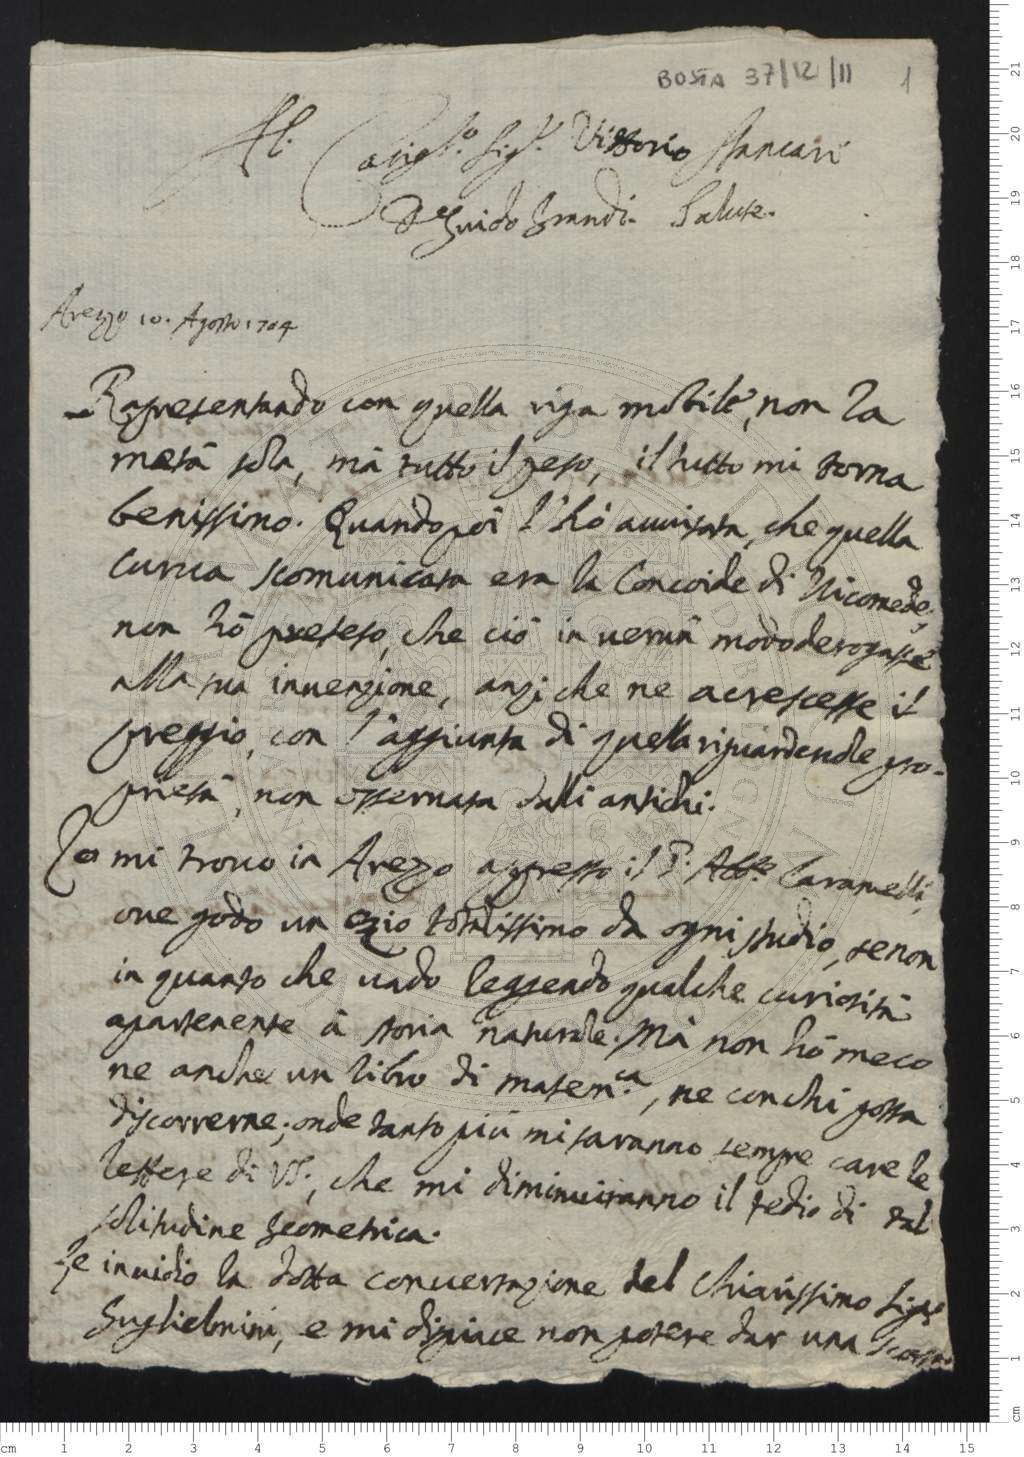 BUSTA 37/12/11 1
Al Sigr. Vittorio Stancari
De Guido Grandi. Salute.
Arezzo 10. Agosto 1704
Rapresentando con quella riga mobile, non la
metà sola, mà tutto il peso, il tutto mi torna
benissimo. Quando poi l'hò avvisata, che quella
curva scomunicata era la Concoide di Nicomede,
non hò preteso, che ciò in verun modo derogasse
alla sua invenzione, anzi che ne acrescesse il
preggio, con l'aggiunta di quella riguardevole pro-
prietà, non osservata dalli antichi.
Io mi trovo in Arezzo appresso il P. Abbe. Caramelli,
ove godo un ozio totalissimo da ogni studio, se non
in quanto che vado leggendo qualche curiosità
apartenente à storia naturale. Mà non hò meco
ne anche un libro di matem.ca, ne con chi possa
discorrerne; onde tanto più mi saranno sempre care le
lettere di VS., che mi diminuiranno il tedio di tal
solitudine geometrica.
Le invidio la dotta conversazione del Chiarissimo Sigr.
Guglielmini, e mi dispiace non potere dar una scorsa